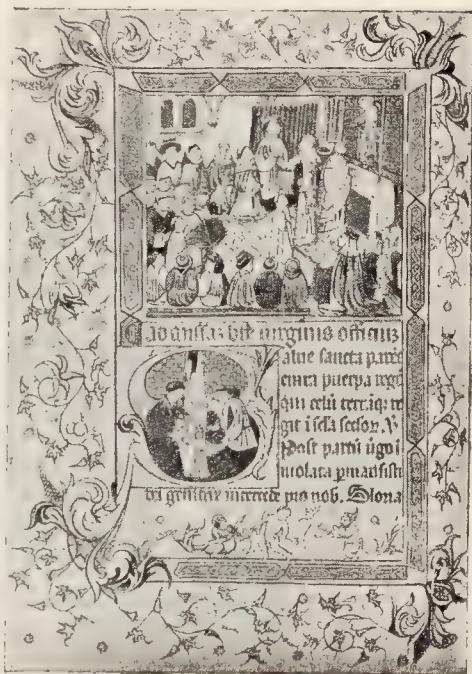 Ad missaz bte virginis officiuz
alue sancta parēs
enixa puerpa rege
qui celū terrāq; re
git i scła scłoꝝ. V̄
Post partū v̄go i
uiolata pmansisti
dei genitrix intercede pro nob. Gloria